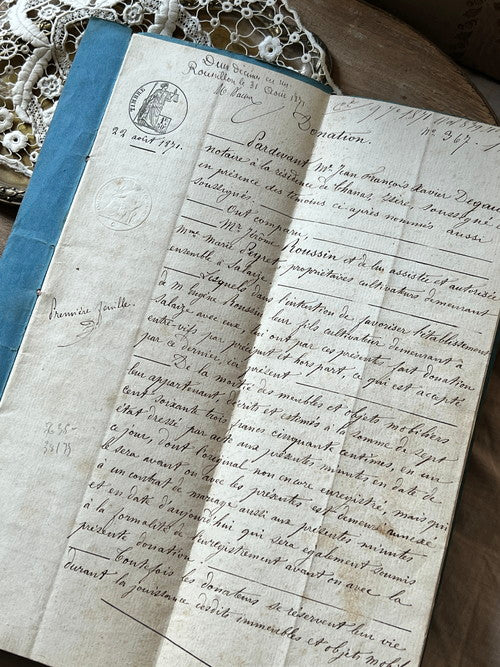 Roussillon le 31 août 1871
TIMBRE
24 août 1871.
Première feuille.
3635-
34175
n° 367.
Donation.
Pardevant Me Jean François Xavier
notaire à la résidence de Chanas Isère soussigné
en présence des témoins ci-après nommés aussi
soussignés.
Ont comparu
Mr Jérôme Roussin et de lui assistée et autorisée
Mme Marie Peyret propriétaires cultivateurs demeurant
ensemble à Salaize
Lesquels dans l'intention de favoriser l'établissement
à M Eugène Roussin leur fils cultivateur demeurant à
Salaize avec une ont par ces présentes fait donation
entre-vifs par préciput et hors part, ce qui est accepté
par ce dernier, ici présent
De la moitié des meubles et objets mobiliers
leur appartenant décrits et estimés à la somme de sept
cent soixante trois francs cinquante centimes, en un
état dressé par aux présentes minutes en date de
ce jour, dont l'original non encore enregistré, mais qui
le sera avant ou avec les présentes est demeuré annexé
à un contrat de mariage aussi aux présentes minutes
et en date d'aujourd'hui qui sera également soumis
à la formalité de l'enregistrement avant ou avec la
présente donation.
Toutefois les donateurs se réservent leur vie
durant la jouissance desdits immeubles et objets